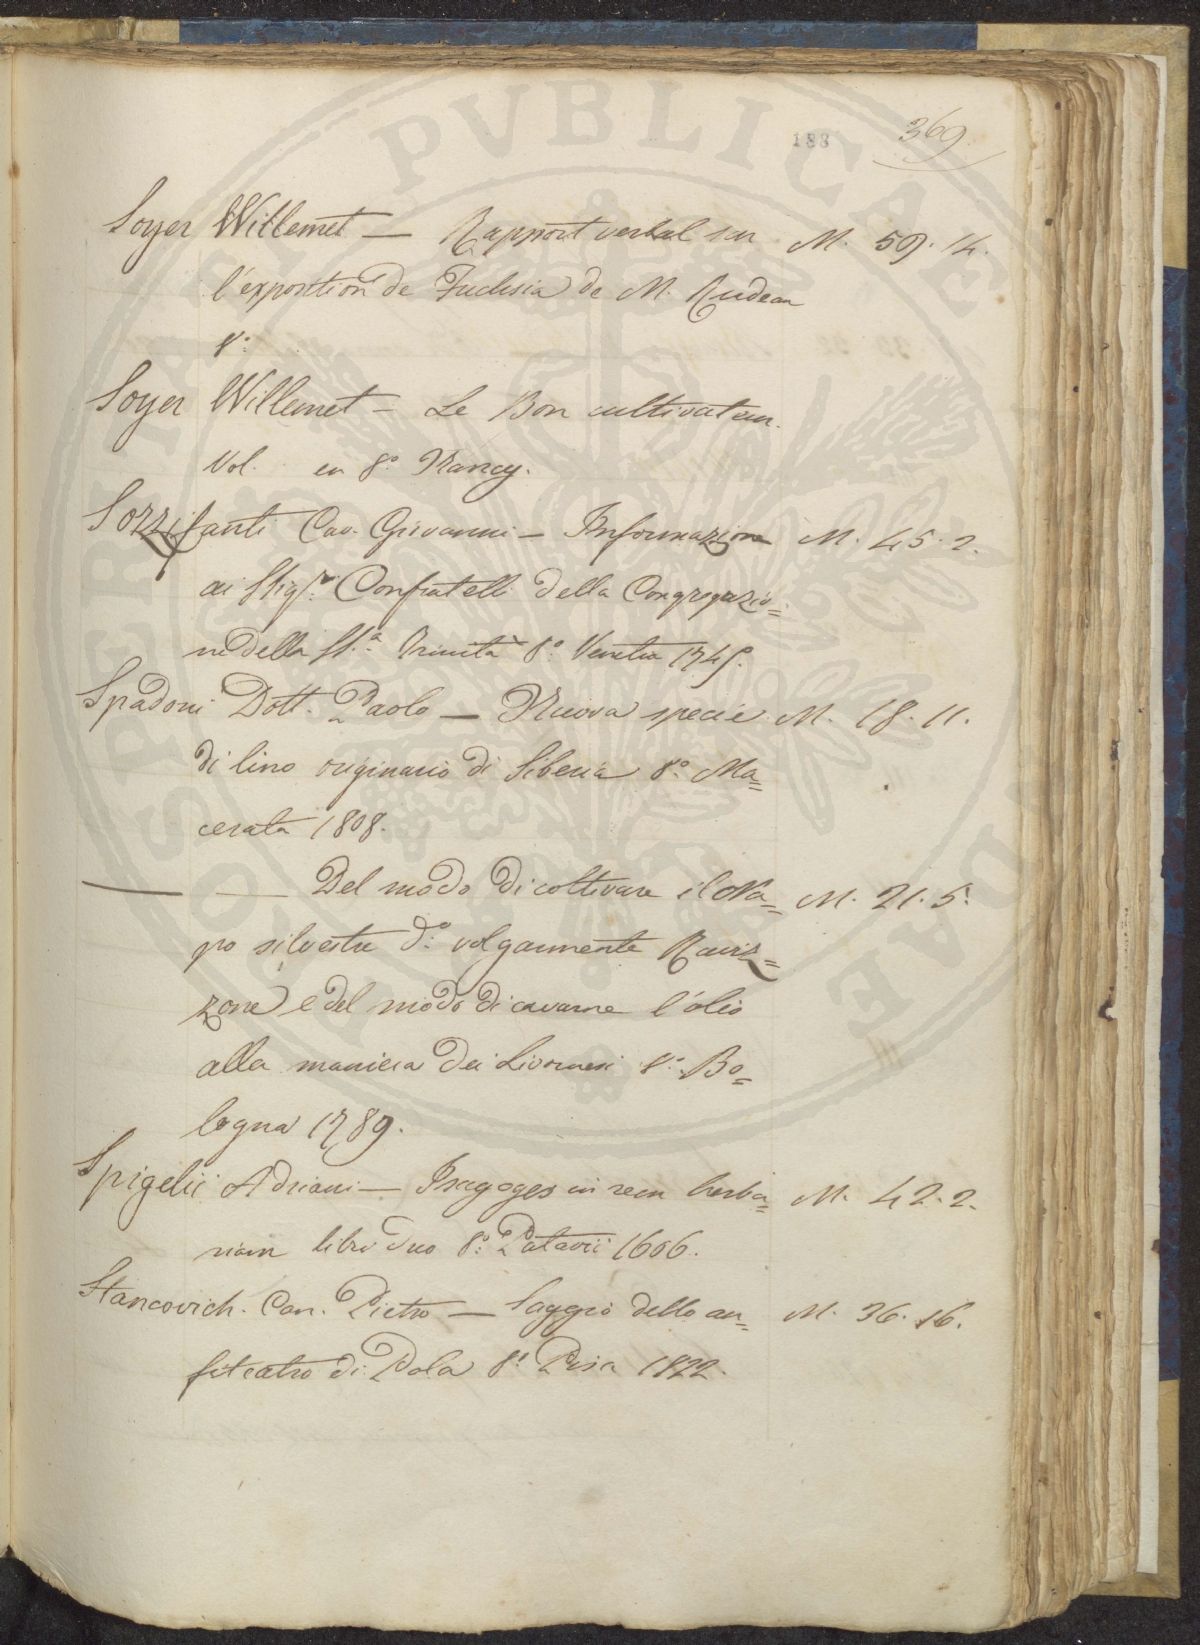 188 369
Soyer Willemet — Rapport verbal sur M. 59. 14.
l'exposition de Fuchsia de M. Rudeau
8.°
Soyer Willemet — Le Bon cultivateur.
Vol. en 8.° Nancy.
Sozzifanti Cav. Giovanni — Informazione M. 45. 2.
ai Sig.ri Confratelli della Congregazio=
ne della SS.a Trinità 8.° Venetia 1745.
Spadoni Dott. Paolo — Nuova specie M. 18. 11.
di lino originario di Siberia 8.° Ma=
cerata 1808.
— — Del modo di coltivare il Na= M. 21. 5.
po silvestre d.° volgarmente Raviz=
zone e del modo di cavarne l'olio
alla maniera dei Livornesi 8.° Bo=
logna 1789.
Spigelii Adriani — Isagoges in rem herba= M. 42. 2.
riam libri duo 8.° Patavii 1606.
Stancovich Can. Pietro — Saggio dello an= M. 36. 16.
fiteatro di Pola 8.° Pisa 1822.
PVBLICAE